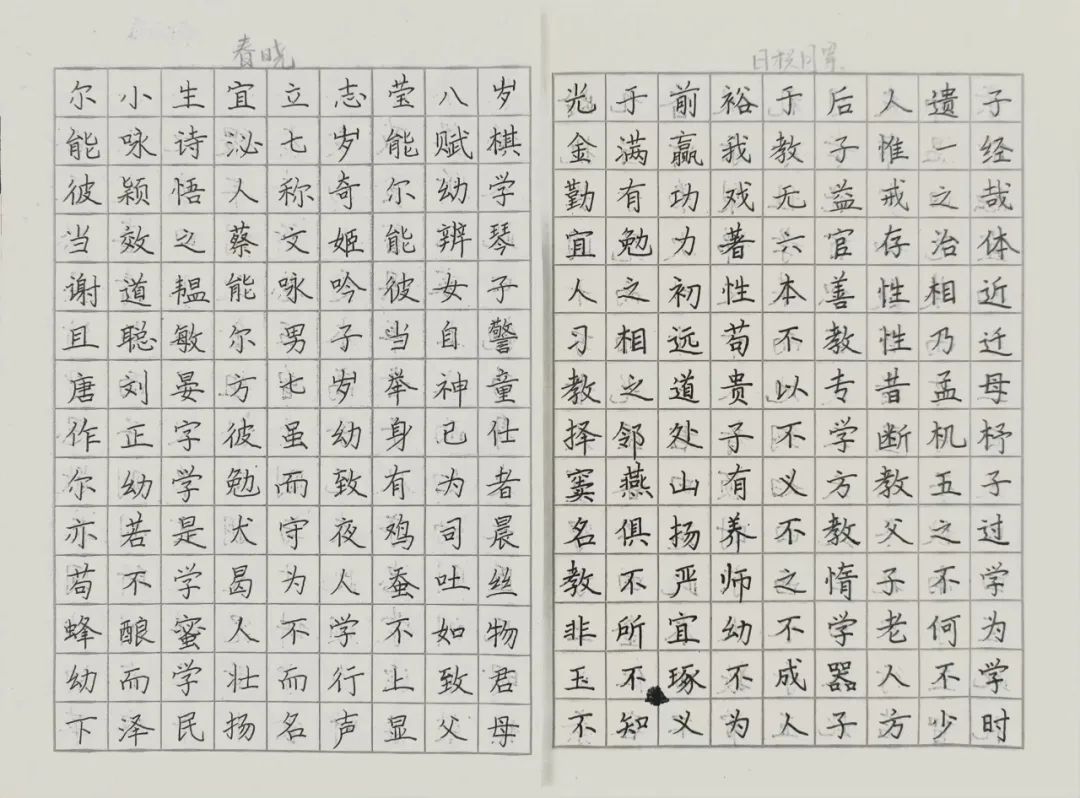 春晓
尔小生宜立志莹八岁
能咏诗泌七岁能赋棋
彼颖悟人称奇尔幼学
当效之蔡文姬能辨琴
谢道韫能咏吟彼女子
且聪敏尔男子当自警
唐刘晏方七岁举神童
作正字彼虽幼身已仕
尔幼学勉而致有为者
亦若是犬守夜鸡司晨
苟不学曷为人蚕吐丝
蜂酿蜜人不学不如物
幼而学壮而行上致君
下泽民扬名声显父母
光于前裕于后人遗子
金满赢我教子惟一经
勤有功戏无益戒之哉
宜勉力著六官存治体
人之初性本善性相近
习相远苟不教性乃迁
教之道贵以专昔孟母
择邻处子不学断机杼
窦燕山有义方教五子
名俱扬养不教父之过
教不严师之惰子不学
非所宜幼不学老何为
玉不琢不成器人不学
不知义为人子方少时